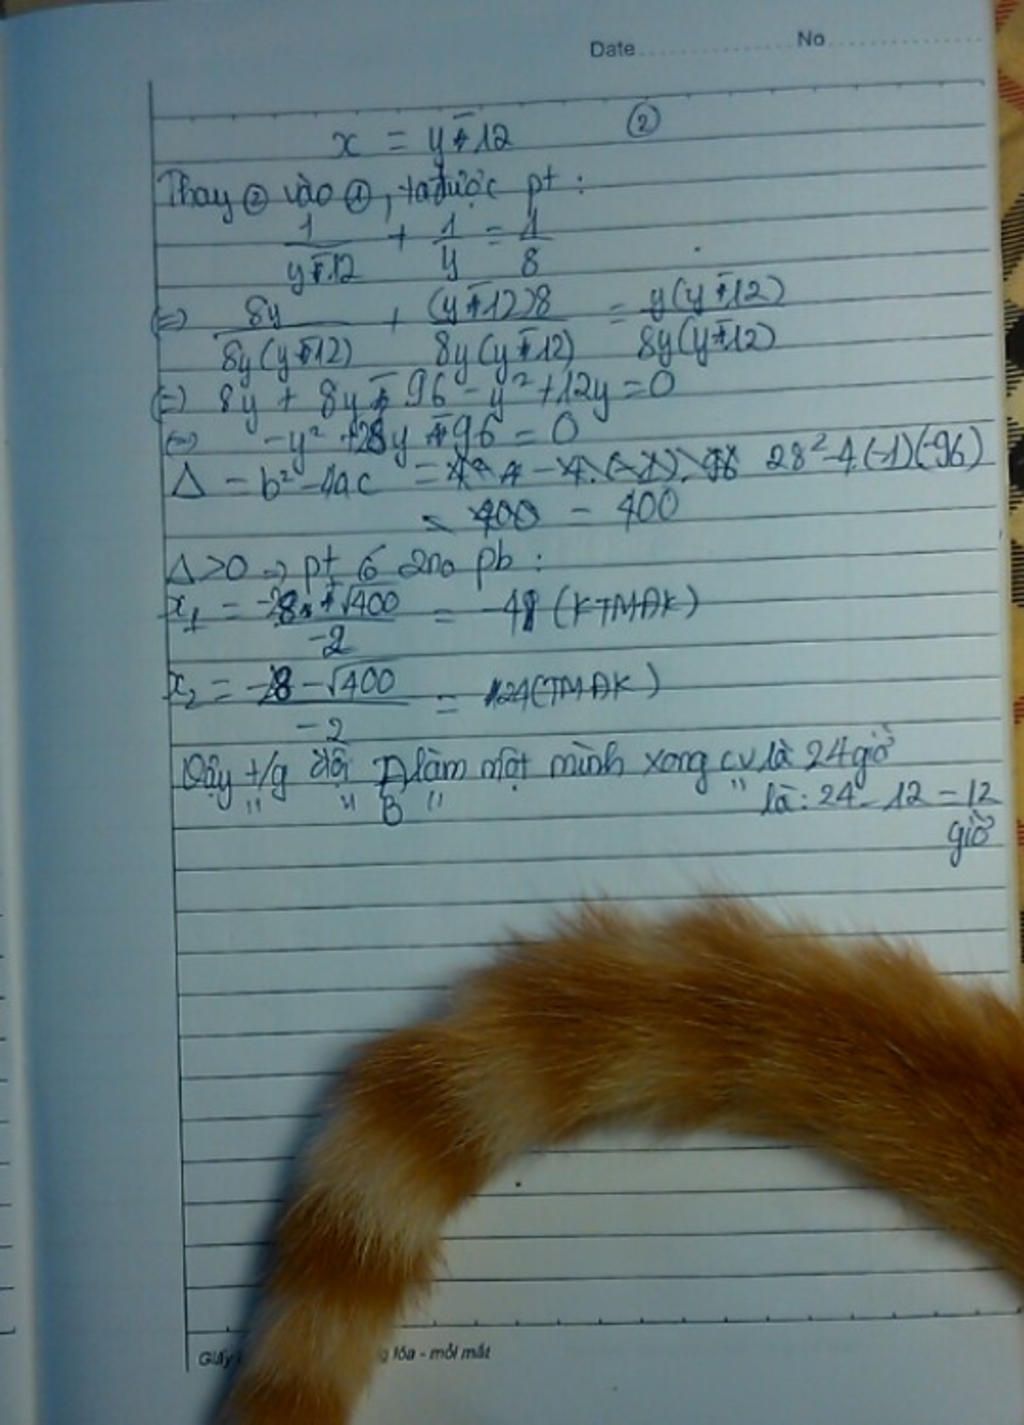 Date No
x = y - 12 ②
Thay ② vào ①, ta được pt :
1/(y - 12) + 1/y = 1/8
(=) 8y/(8y(y - 12)) + (y - 12)8/(8y(y - 12)) = y(y - 12)/(8y(y - 12))
(=) 8y + 8y - 96 - y² + 12y = 0
(=) -y² + 28y - 96 = 0
Δ = b² - 4ac = 28² - 4.(-1)(-96)
= 400 = 400
Δ > 0 => pt có 2no pb :
x₁ = (-28 + √400)/(-2) = 4 (KTMĐK)
x₂ = (-28 - √400)/(-2) = 24 (TMĐK)
Vậy t/g đội A làm một mình xong cv là 24 giờ
" " B " " là : 24 - 12 = 12
giờ
Giấy lóa - mỏi mắt